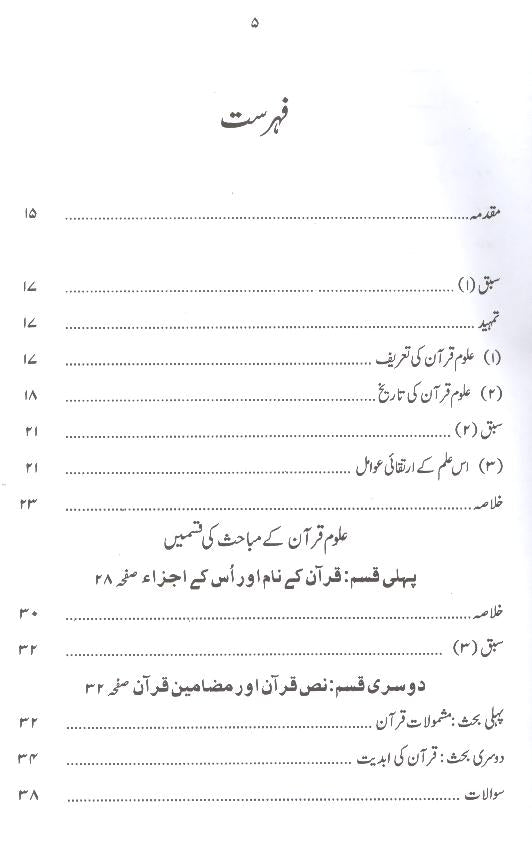 ۵
فہرست
مقدمہ ........................................ ۱۵
سبق (۱) ........................................ ۱۷
تمہید ........................................ ۱۷
(۱) علوم قرآن کی تعریف ........................................ ۱۷
(۲) علوم قرآن کی تاریخ ........................................ ۱۸
سبق (۲) ........................................ ۲۱
(۳) اس علم کے ارتقائی عوامل ........................................ ۲۱
خلاصہ ........................................ ۲۳
علوم قرآن کے مباحث کی قسمیں
پہلی قسم: قرآن کے نام اور اُس کے اجزاء صفحہ ۲۸
خلاصہ ........................................ ۳۰
سبق (۳) ........................................ ۳۲
دوسری قسم: نص قرآن اور مضامین قرآن صفحہ ۳۲
پہلی بحث: مشمولات قرآن ........................................ ۳۲
دوسری بحث: قرآن کی ابدیت ........................................ ۳۴
سوالات ........................................ ۳۸